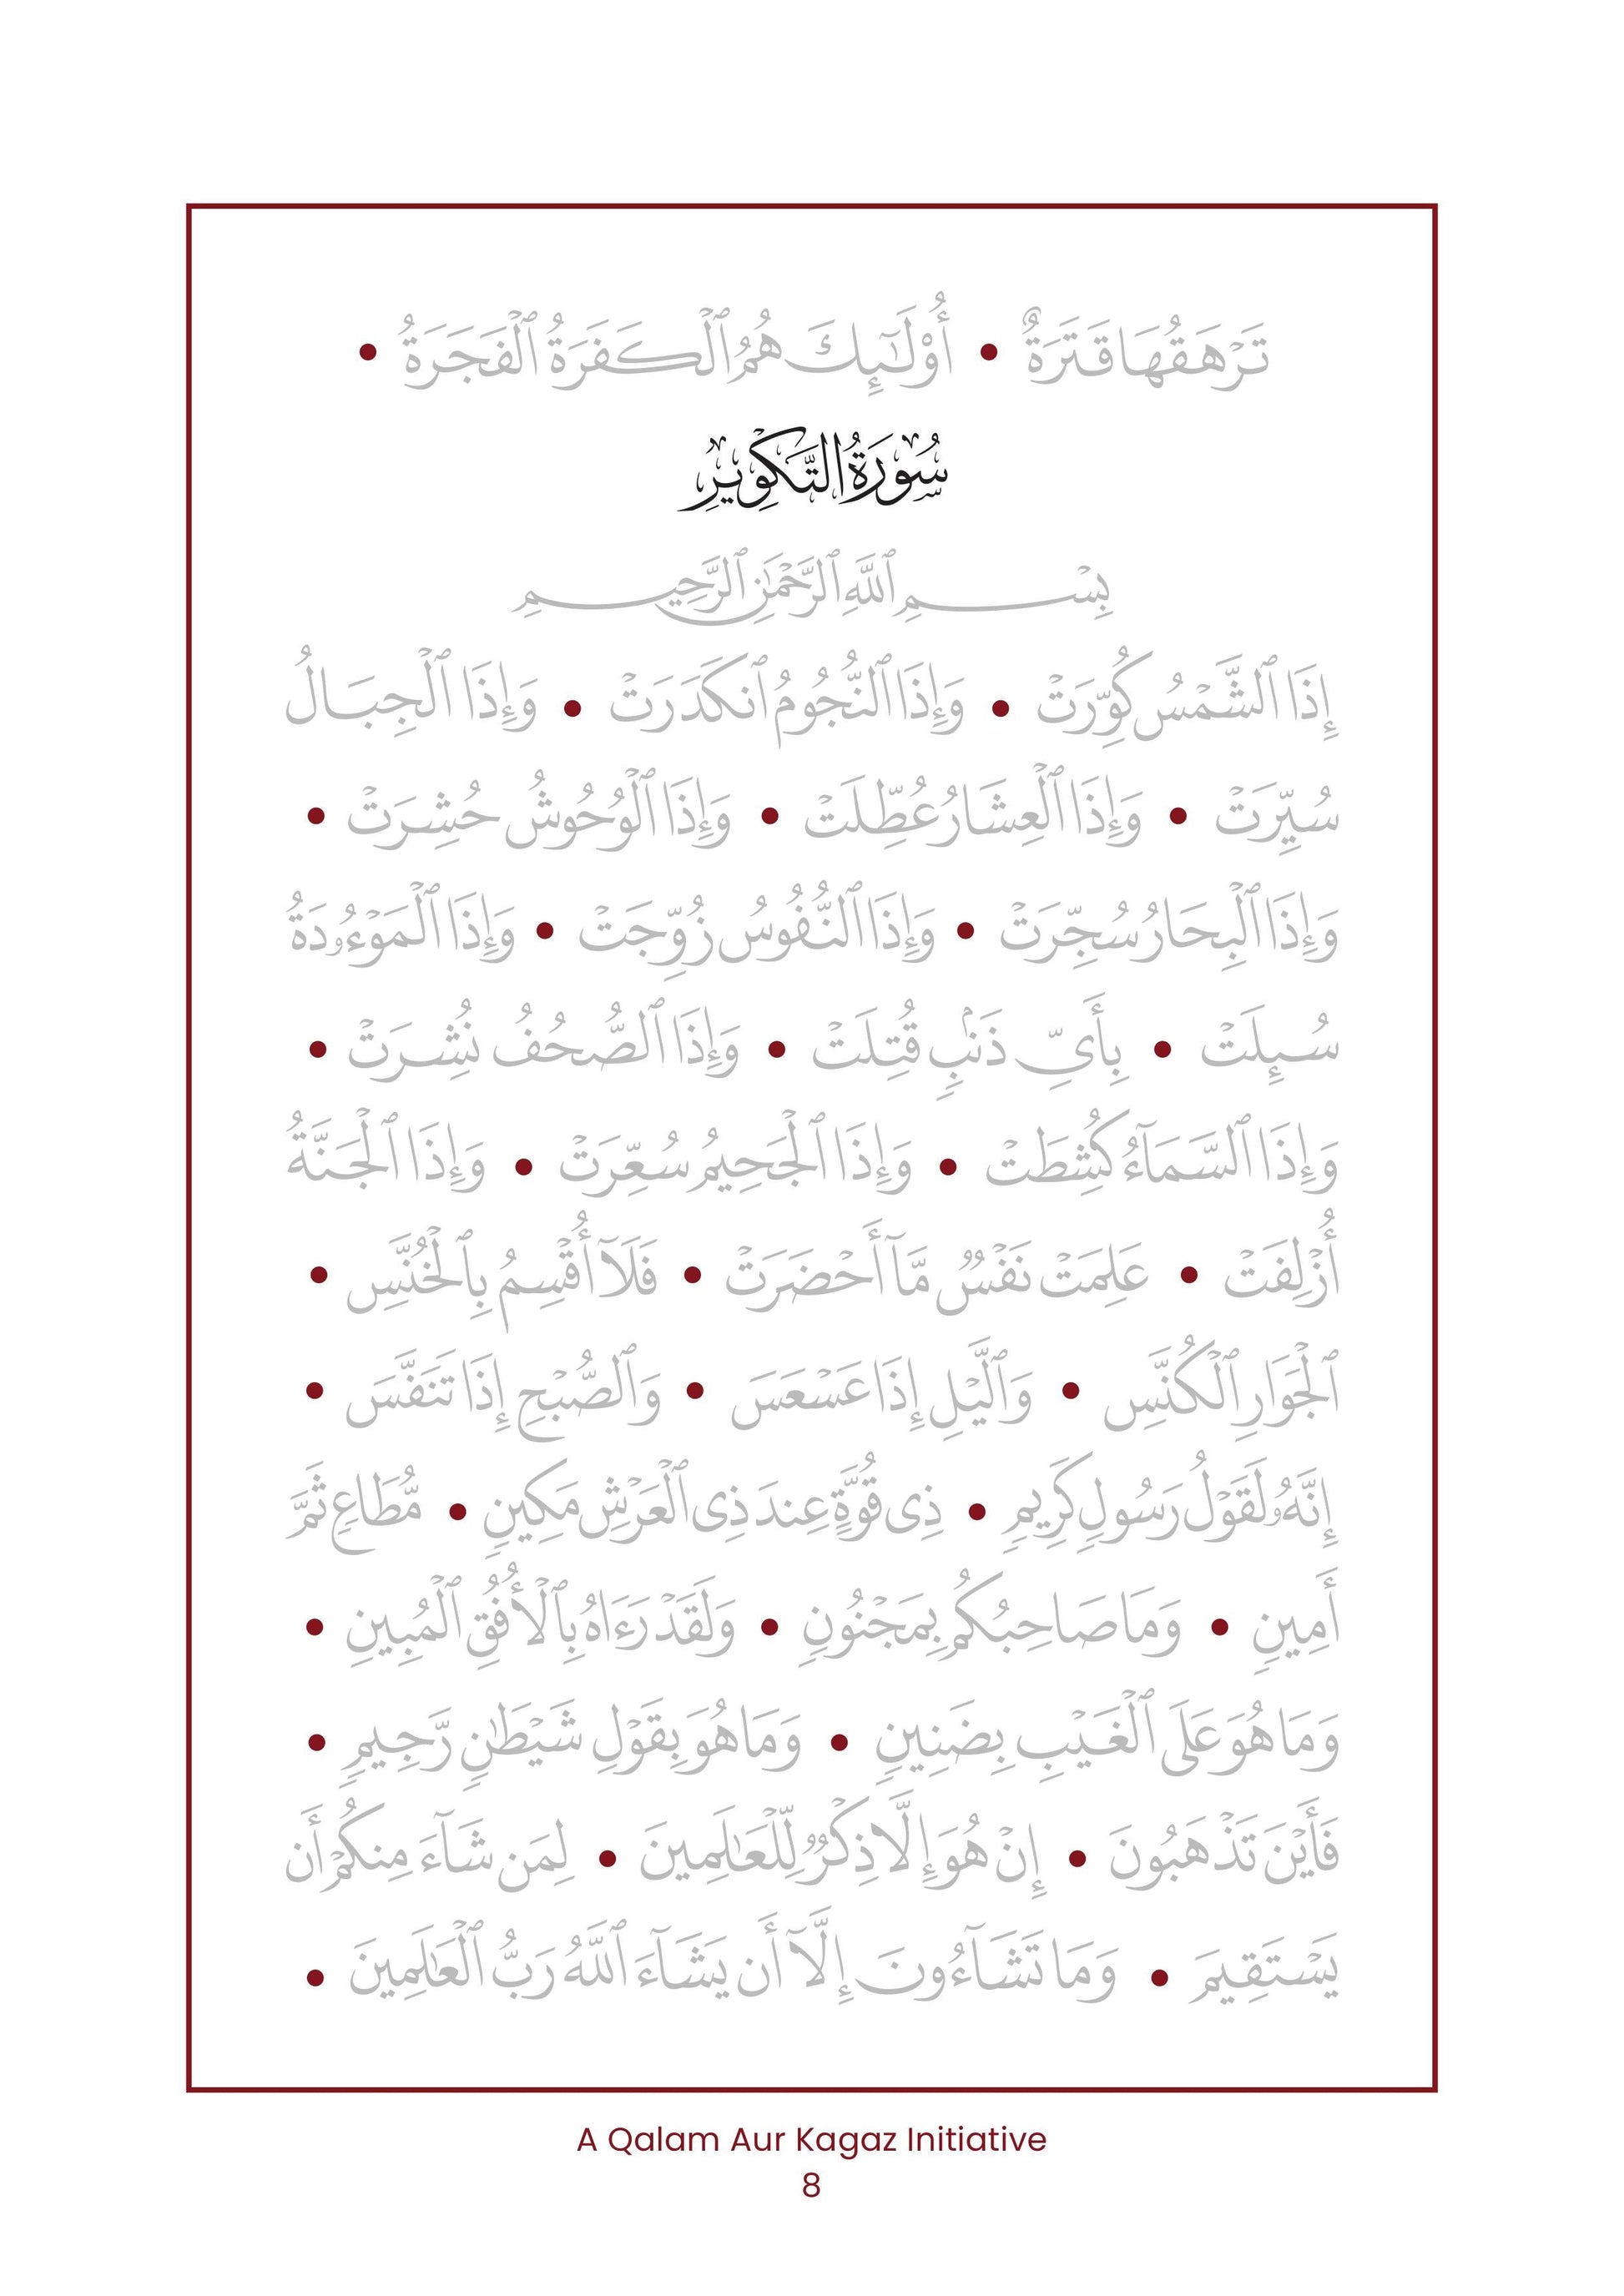 تَرْهَقُهَا قَتَرَةٌ • أُوْلَٰٓئِكَ هُمُ ٱلْكَفَرَةُ ٱلْفَجَرَةُ •
سُورَةُ التَّكْوِيرِ
بِسْمِ ٱللَّهِ ٱلرَّحْمَٰنِ ٱلرَّحِيمِ
إِذَا ٱلشَّمْسُ كُوِّرَتْ • وَإِذَا ٱلنُّجُومُ ٱنكَدَرَتْ • وَإِذَا ٱلْجِبَالُ
سُيِّرَتْ • وَإِذَا ٱلْعِشَارُ عُطِّلَتْ • وَإِذَا ٱلْوُحُوشُ حُشِرَتْ •
وَإِذَا ٱلْبِحَارُ سُجِّرَتْ • وَإِذَا ٱلنُّفُوسُ زُوِّجَتْ • وَإِذَا ٱلْمَوْءُۥدَةُ
سُئِلَتْ • بِأَىِّ ذَنۢبٍ قُتِلَتْ • وَإِذَا ٱلصُّحُفُ نُشِرَتْ •
وَإِذَا ٱلسَّمَآءُ كُشِطَتْ • وَإِذَا ٱلْجَحِيمُ سُعِّرَتْ • وَإِذَا ٱلْجَنَّةُ
أُزْلِفَتْ • عَلِمَتْ نَفْسٌ مَّآ أَحْضَرَتْ • فَلَآ أُقْسِمُ بِٱلْخُنَّسِ •
ٱلْجَوَارِ ٱلْكُنَّسِ • وَٱلَّيْلِ إِذَا عَسْعَسَ • وَٱلصُّبْحِ إِذَا تَنَفَّسَ •
إِنَّهُۥ لَقَوْلُ رَسُولٍ كَرِيمٍ • ذِى قُوَّةٍ عِندَ ذِى ٱلْعَرْشِ مَكِينٍ • مُّطَاعٍ ثَمَّ
أَمِينٍ • وَمَا صَاحِبُكُم بِمَجْنُونٍ • وَلَقَدْ رَءَاهُ بِٱلْأُفُقِ ٱلْمُبِينِ •
وَمَا هُوَ عَلَى ٱلْغَيْبِ بِضَنِينٍ • وَمَا هُوَ بِقَوْلِ شَيْطَٰنٍ رَّجِيمٍ •
فَأَيْنَ تَذْهَبُونَ • إِنْ هُوَ إِلَّا ذِكْرٌ لِّلْعَٰلَمِينَ • لِمَن شَآءَ مِنكُمْ أَن
يَسْتَقِيمَ • وَمَا تَشَآءُونَ إِلَّآ أَن يَشَآءَ ٱللَّهُ رَبُّ ٱلْعَٰلَمِينَ •
A Qalam Aur Kagaz Initiative
8